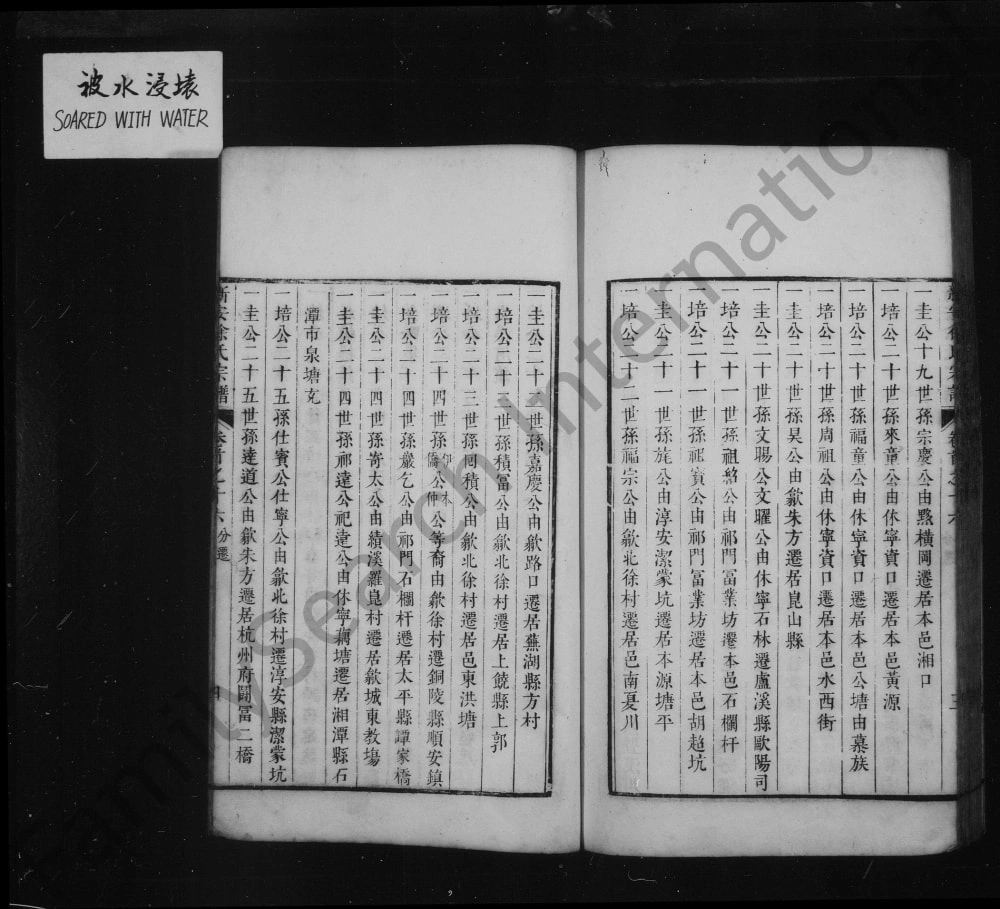 被水浸壊
SOARED WITH WATER
一圭公十九世孫宗慶公由黟橫岡遷居本邑湘口
一培公二十世孫來童公由休寧資口遷居本邑黃源
一培公二十世孫福童公由休寧資口遷居本邑公塘由墓族
一培公二十世孫周祖公由休寧資口遷居本邑水西街
一圭公二十世孫昊公由歙朱方遷居崑山縣
一圭公二十世孫文賜公文曜公由休寧石林遷盧溪縣歐陽司
一培公二十一世孫祖絡公由祁門冨業坊遷本邑石欄杆
一培公二十一世孫祖寳公由祁門冨業坊遷居本邑胡趙坑
一圭公二十一世孫旄公由淳安潔蒙坑遷居本源塘平
一培公二十二世孫福宗公由歙北徐村遷居邑南夏川
一圭公二十二世孫嘉慶公由歙路口遷居蕪湖縣方村
一培公二十二世孫積冨公由歙北徐村遷居上饒縣上郭
一培公二十三世孫同積公由歙北徐村遷居邑東洪塘
一培公二十四世孫公仲公等裔由歙徐村遷銅陵縣順安鎮
一培公二十四世孫嚴乞公由祁門石欄杆遷居太平縣譚家橋
一圭公二十四世孫寄太公由績溪羅昆村遷居歙城東教塲
一圭公二十四世孫祁達公祀達公由休寧藕塘遷居湘潭縣石
潭市泉塘玄
一培公二十五孫仕賓公仕寧公由歙北徐村遷淳安縣潔蒙坑
一圭公二十五世孫達道公由歙朱方遷居杭州府鬪冨二橋
新安徐氏宗譜 卷首之十六 分遷
FamilySearch International